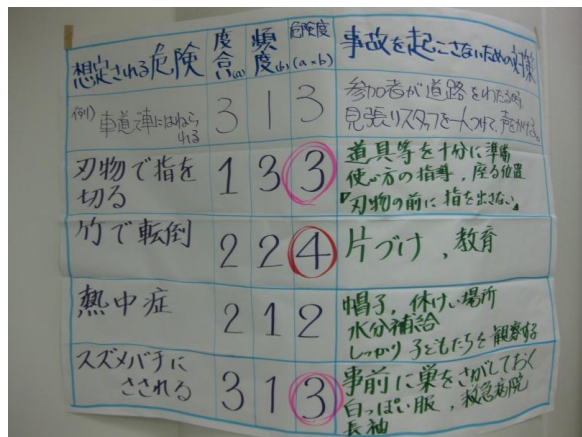 想定される危険
度合(a)
頻度(b)
危険度(a×b)
事故を起こさないための対策
例) 車道で車にはねら
れる
3
1
3
参加者が道路をわたる時
見張りスタッフを一人つけて、声をかける。
刃物で指を
切る
1
3
3
道具等を十分に準備
使い方の指導、座る位置
『刃物の前に指を出さない』
竹で転倒
2
2
4
片づけ、教育
熱中症
2
1
2
帽子、休けい場所
水分補給
しっかり子どもたちを観察する
スズメバチに
さされる
3
1
3
事前に巣をさがしておく
白っぽい服、救急病院
長袖